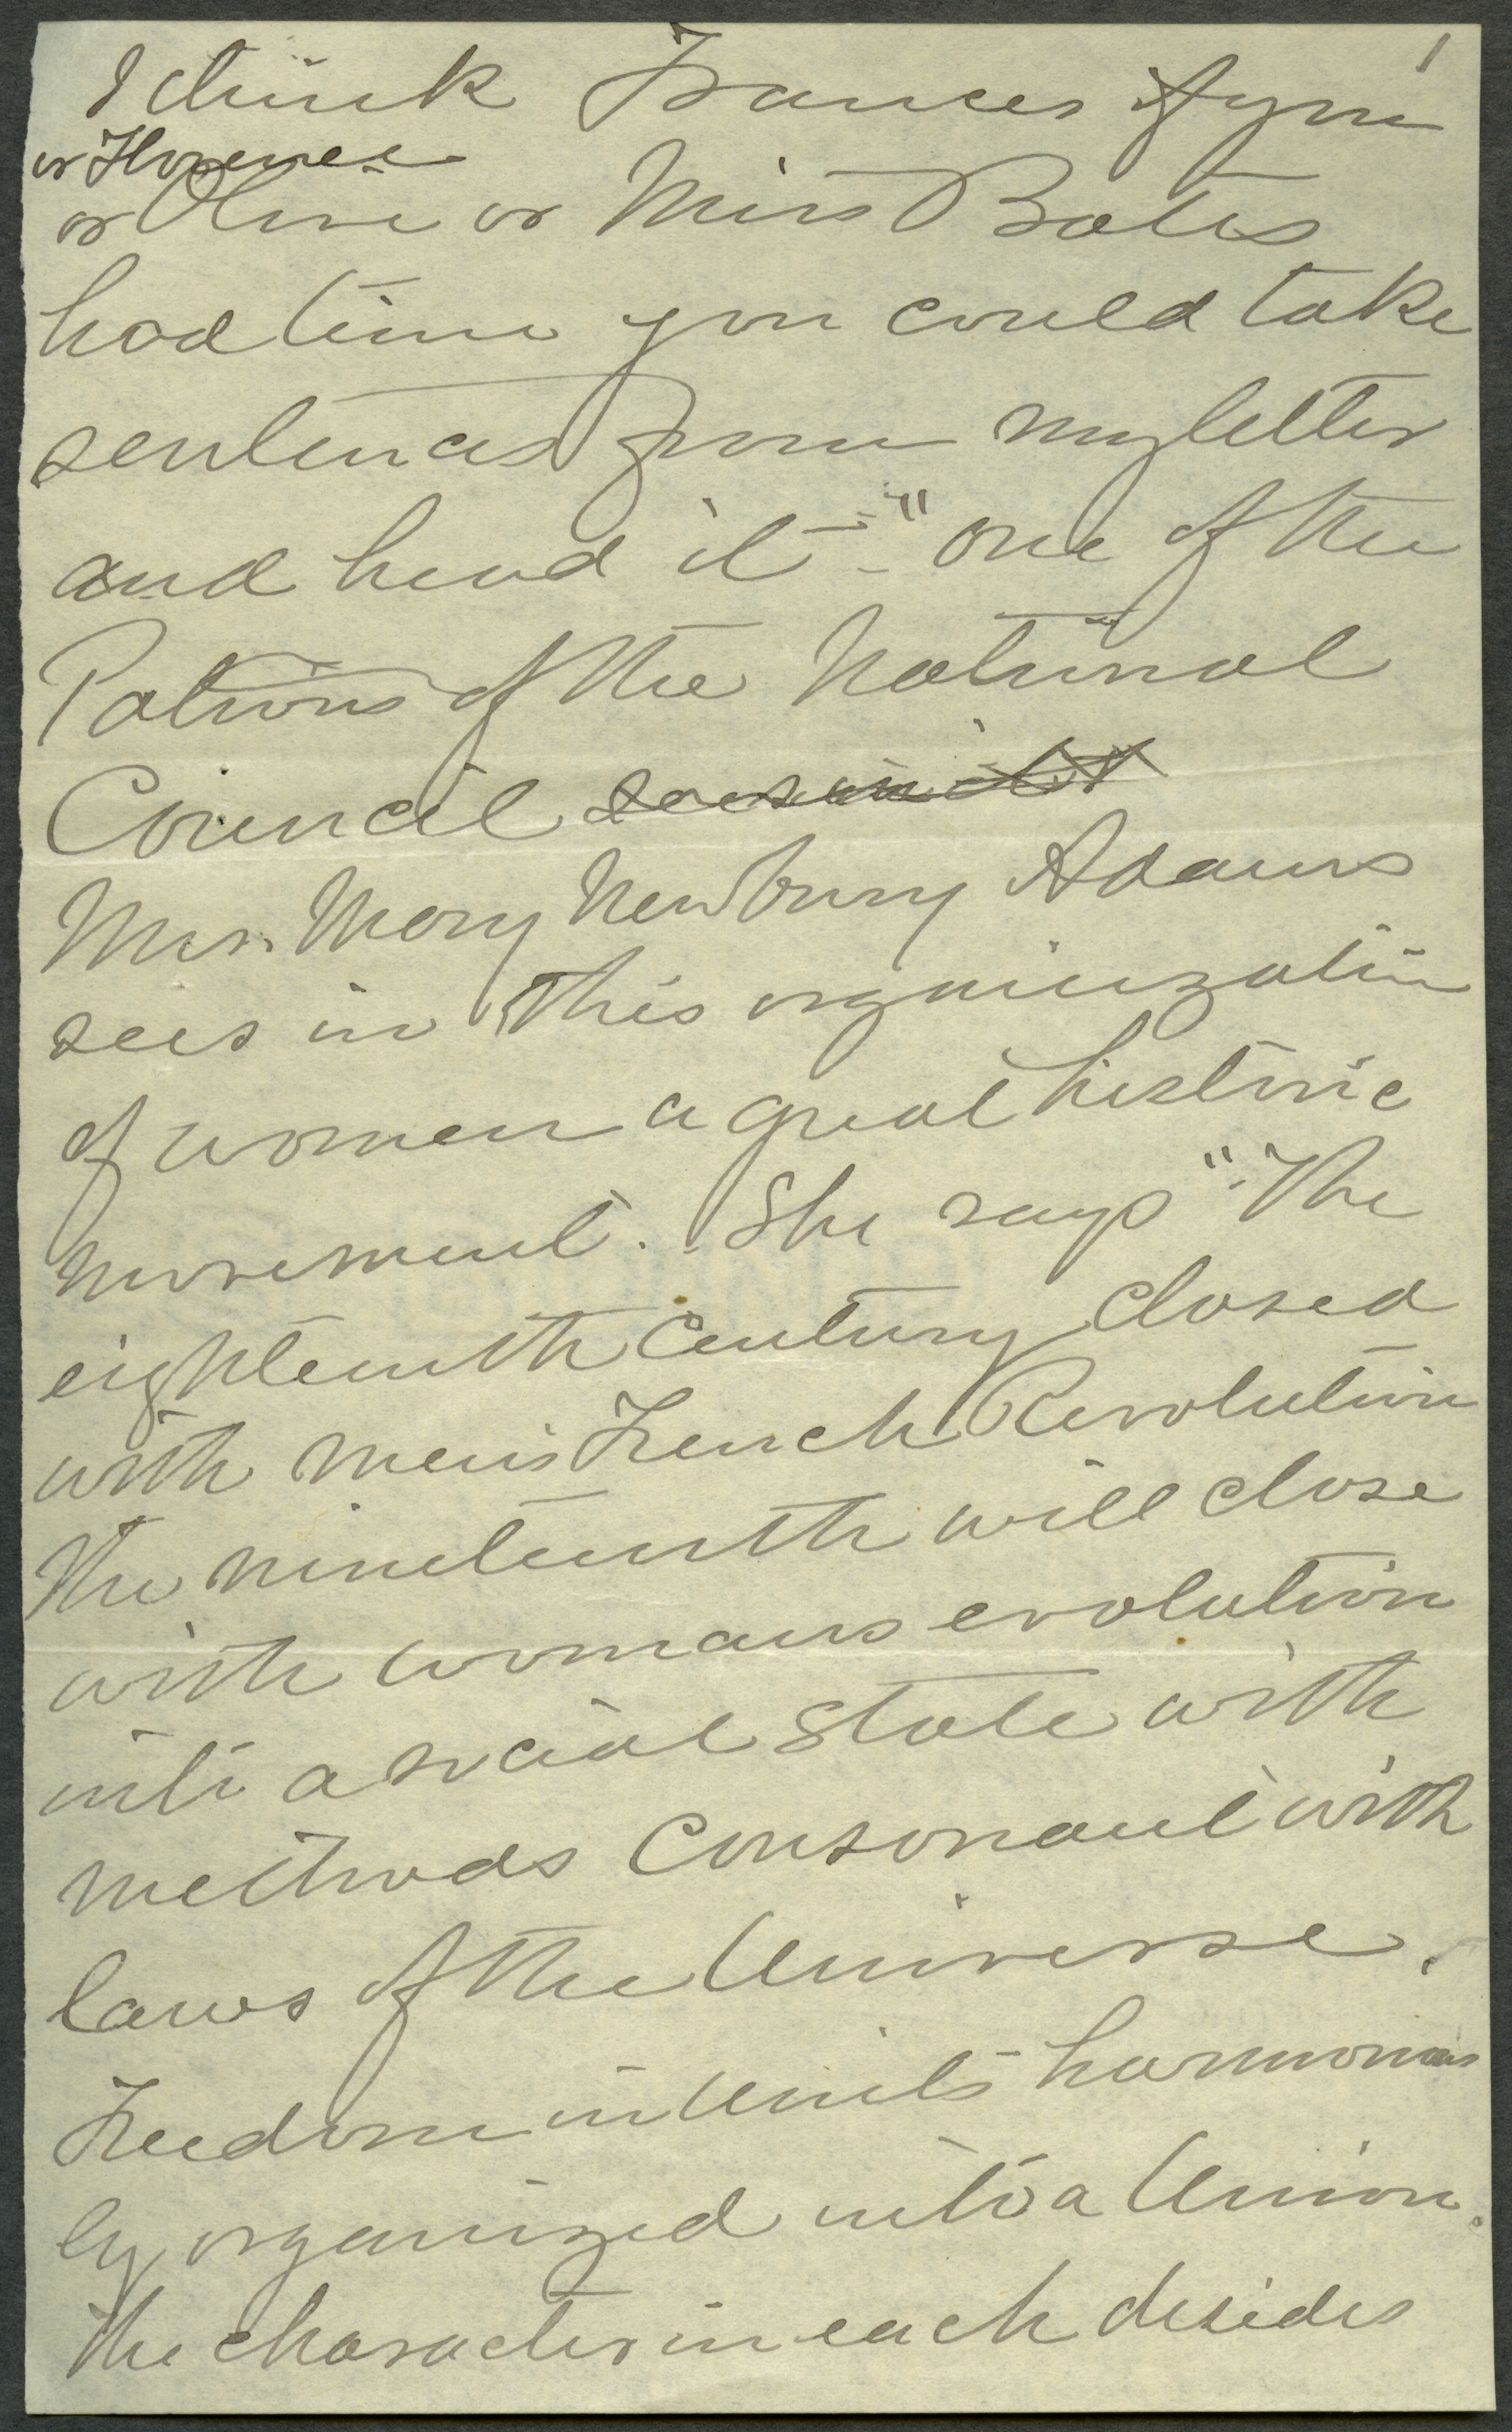 1
I think Frances
or Florence
or Olive or Miss Bates
had time you could take
sentences from my letter
and head it - "One of the
Patrons of the National
Council sees in it
Mrs. Mary Newbury Adams
sees in this organization
of women a great historic
movement. She says "The
eighteenth Century closed
with men's French Revolution
The nineteenth will close
with womans evolution
into a social State with
methods Consonant with
laws of the Universe.
Freedom in Units harmonious
ly organized into a Union.
The character in each desides